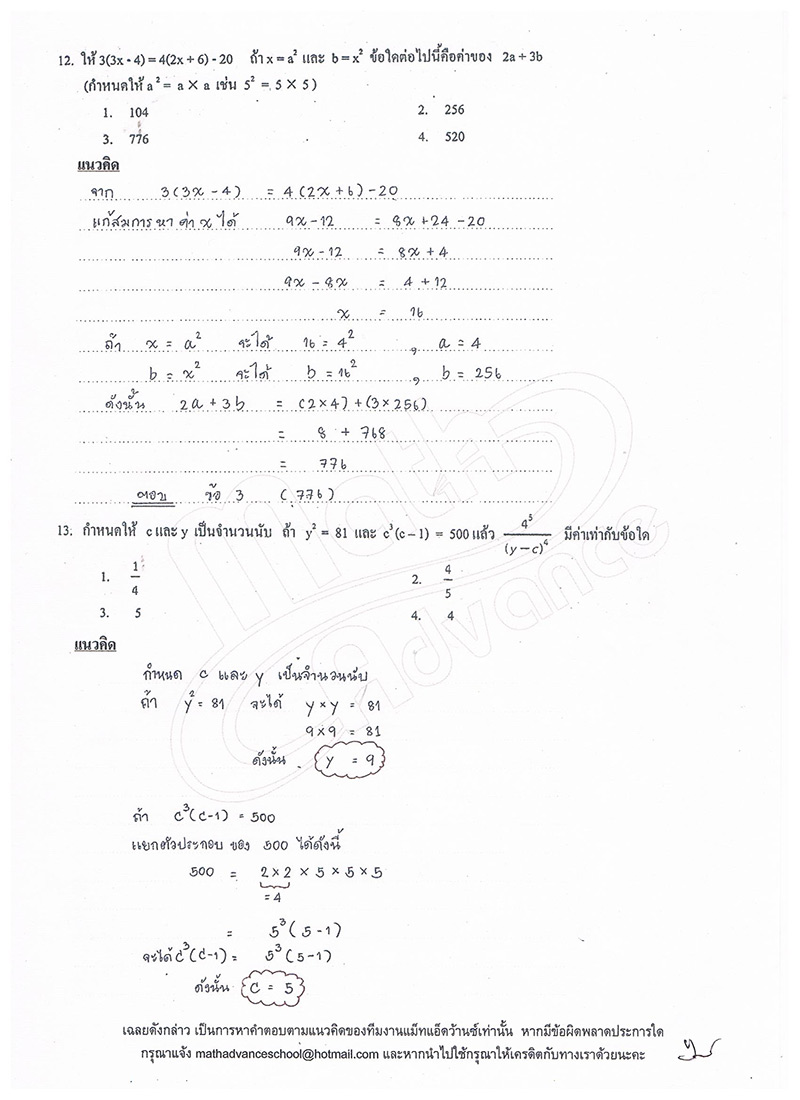 12. ให้ 3(3x - 4) = 4(2x + 6) - 20 ถ้า x = a² และ b = x² ข้อใดต่อไปนี้คือค่าของ 2a + 3b
(กำหนดให้ a² = a × a เช่น 5² = 5 × 5)
1. 104 2. 256
3. 776 4. 520
แนวคิด
จาก 3(3x - 4) = 4(2x + 6) - 20
แก้สมการหาค่า x ได้ 9x - 12 = 8x + 24 - 20
9x - 12 = 8x + 4
9x - 8x = 4 + 12
x = 16
ถ้า x = a² จะได้ 16 = 4² , a = 4
b = x² จะได้ b = 16² , b = 256
ดังนั้น 2a + 3b = (2 × 4) + (3 × 256)
= 8 + 768
= 776
ตอบ ข้อ 3 (776)
13. กำหนดให้ c และ y เป็นจำนวนนับ ถ้า y² = 81 และ c³(c - 1) = 500 แล้ว 4⁵/(y - c)⁴ มีค่าเท่ากับข้อใด
1. 1/4 2. 4/5
3. 5 4. 4
แนวคิด
กำหนด c และ y เป็นจำนวนนับ
ถ้า y² = 81 จะได้ y × y = 81
9 × 9 = 81
ดังนั้น y = 9
ถ้า c³(c - 1) = 500
แยกตัวประกอบ ของ 500 ได้ดังนี้
500 = 2 × 2 × 5 × 5 × 5
= 4
= 5³(5 - 1)
จะได้ c³(c - 1) = 5³(5 - 1)
ดังนั้น c = 5
Math Advance
เฉลยดังกล่าว เป็นการหาคำตอบตามแนวคิดของทีมงานแม็ทแอ็ดว้านซ์เท่านั้น หากมีข้อผิดพลาดประการใด
กรุณาแจ้ง mathadvanceschool@hotmail.com และหากนำไปใช้กรุณาให้เครดิตกับทางเราด้วยนะคะ